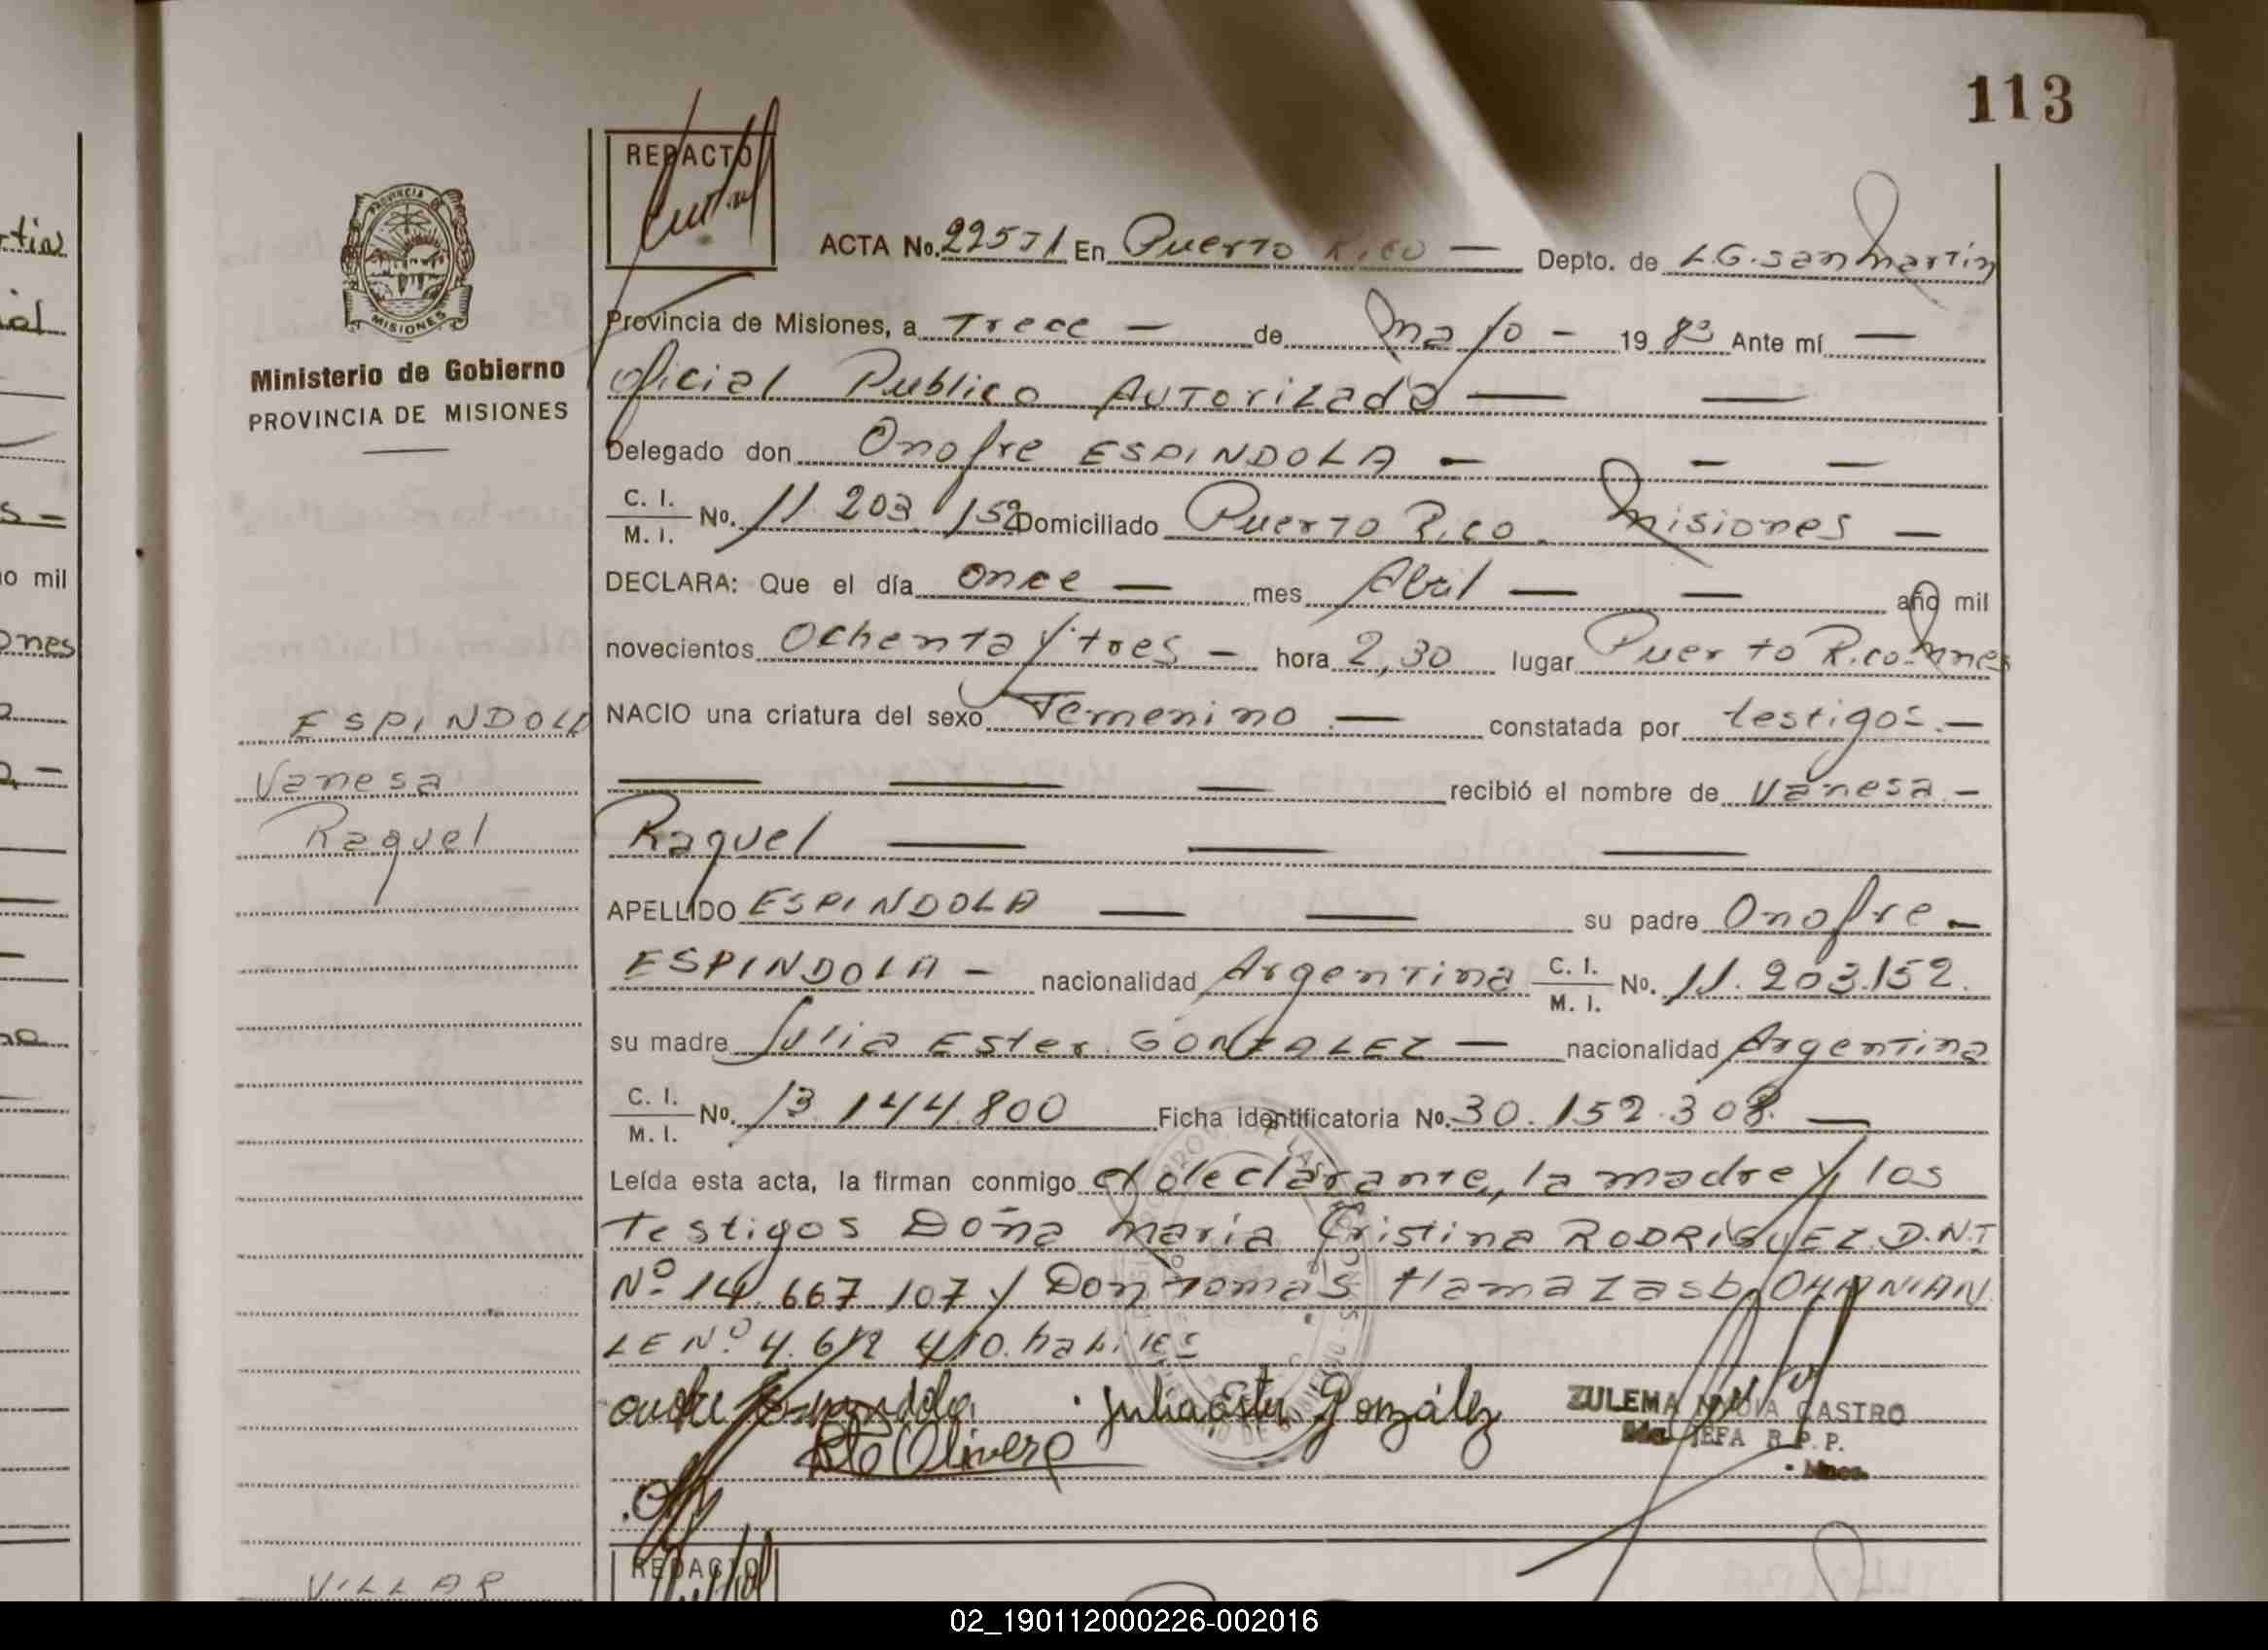 113
REDACTO
ACTA No. 22571 En Puerto Rico — Depto. de L.G. san Martin
PROVINCIA DE
MISIONES
Ministerio de Gobierno
PROVINCIA DE MISIONES
Provincia de Misiones, a Trece — de mayo - 19 83 Ante mí —
oficial Publico Autorizado — —
Delegado don Onofre ESPINDOLA - — —
C. I. / M. I. No. 11.203.152 Domiciliado Puerto Rico. Misiones —
DECLARA: Que el día once — mes Abril — — año mil
novecientos Ochenta y tres - hora 2,30 lugar Puerto Rico. Mnes
NACIO una criatura del sexo Femenino. — constatada por testigos. —
— — — recibió el nombre de Vanesa —
Raquel — — —
APELLIDO ESPINDOLA — — su padre Onofre —
ESPINDOLA — nacionalidad Argentina C. I. / M. I. No. 11.203.152.
su madre Julia Ester GONZALEZ — nacionalidad Argentina
C. I. / M. I. No. 13.144.800 Ficha identificatoria No. 30.152.308. —
Leída esta acta, la firman conmigo el declarante, la madre y los
testigos Doña maria Cristina RODRIGUEZ. D.N.I
Nº 14.667.107 y Don Tomas Hamazasb OHANIAN.
LE Nº 4.612.410. habiles
ESPINDOLA
Vanesa
Raquel
Julia Ester González
ZULEMA NYDIA CASTRO
JEFA R.P.P.
Mnes.
REDACTO
VILLAR
02_190112000226-002016